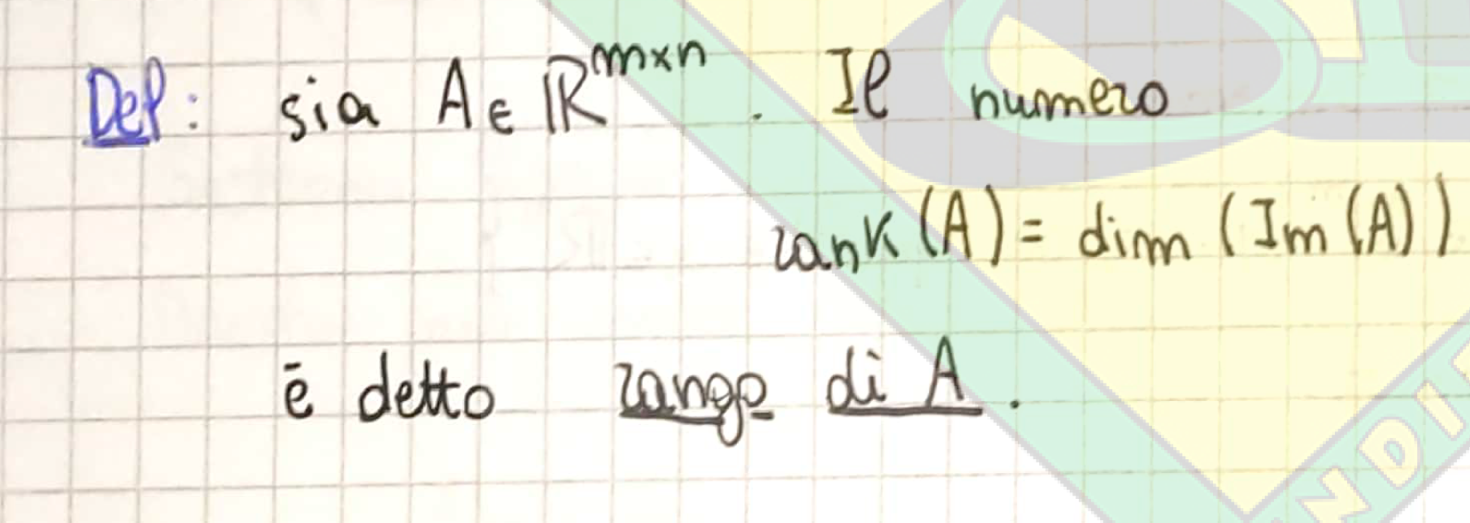 Def: sia A ∈ ℝ^{m×n}. Il numero
rank (A) = dim (Im (A))
è detto rango di A.